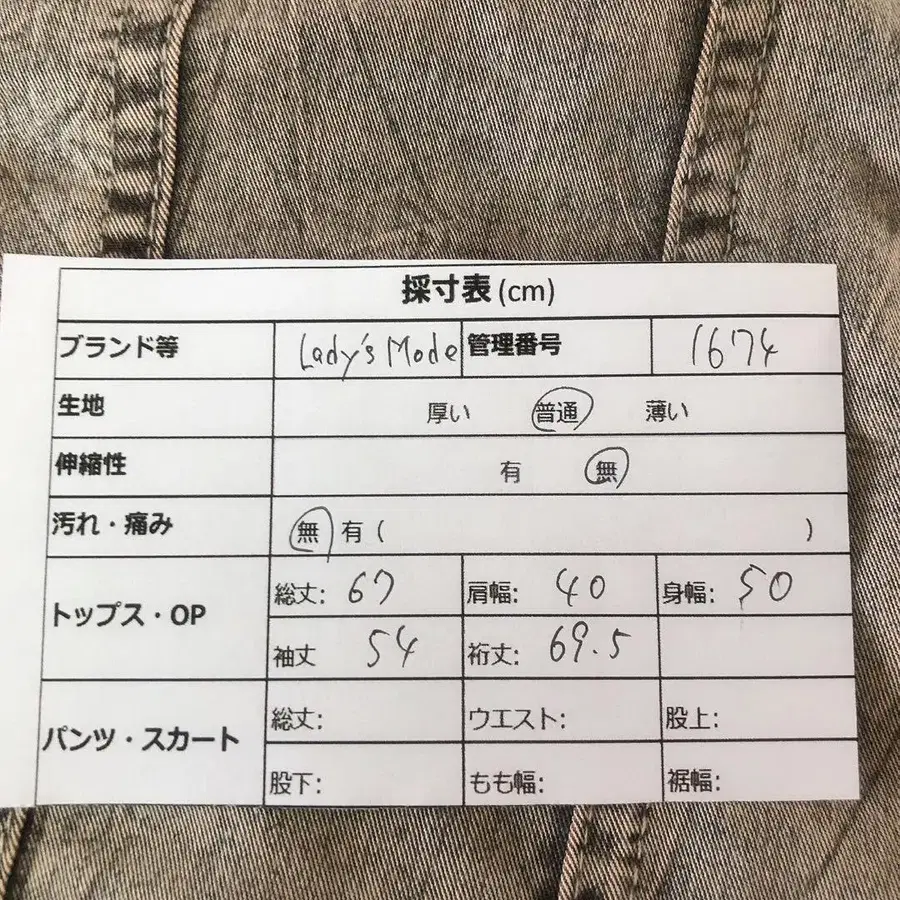 採寸表 (cm)
ブランド等 Lady's Mode 管理番号 1674
生地 厚い 普通 薄い
伸縮性 有 無
汚れ・痛み 無 有 ( )
トップス・OP 総丈: 67 肩幅: 40 身幅: 50
袖丈 54 裄丈: 69.5
パンツ・スカート 総丈: ウエスト: 股上:
股下: もも幅: 裾幅: